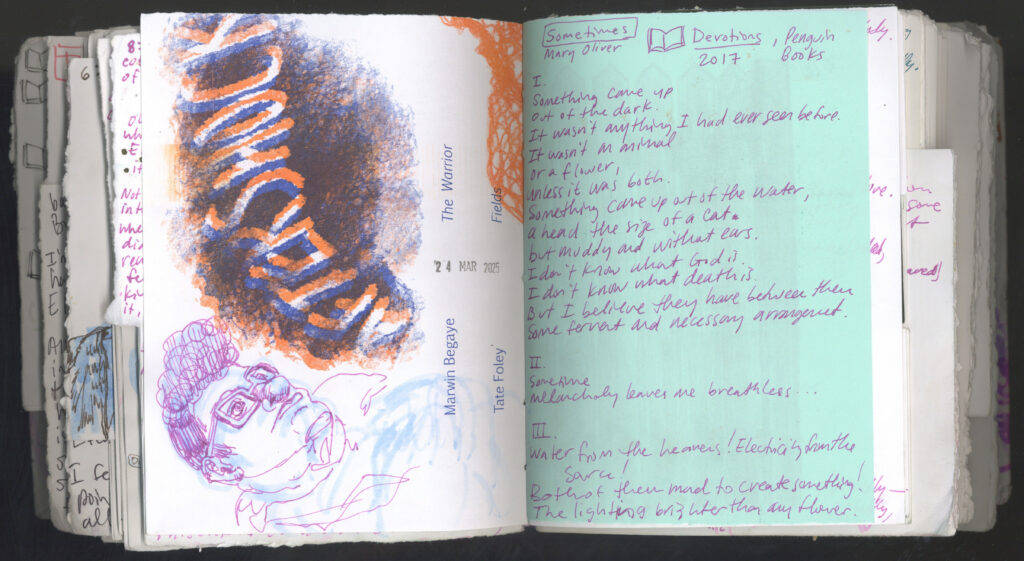 The Warrior
Fields
24 MAR 2025
Marwin Begaye
Tate Foley
Sometimes
Mary Oliver
Devotions, Penguin
2017 Books
I.
Something came up
out of the dark.
It wasn't anything I had ever seen before.
It wasn't an animal
or a flower,
unless it was both.
Something came up out of the water,
a head the size of a cat.
but muddy and without ears.
I don't know what God is.
I don't know what death is.
But I believe they have between them
some fervent and necessary arrangement.
II.
Sometime
melancholy leaves me breathless...
III.
Water from the heavens! Electricity from the
Source!
Both of them mad to create something!
The lighting brighter than any flower.
I fe
poin
all